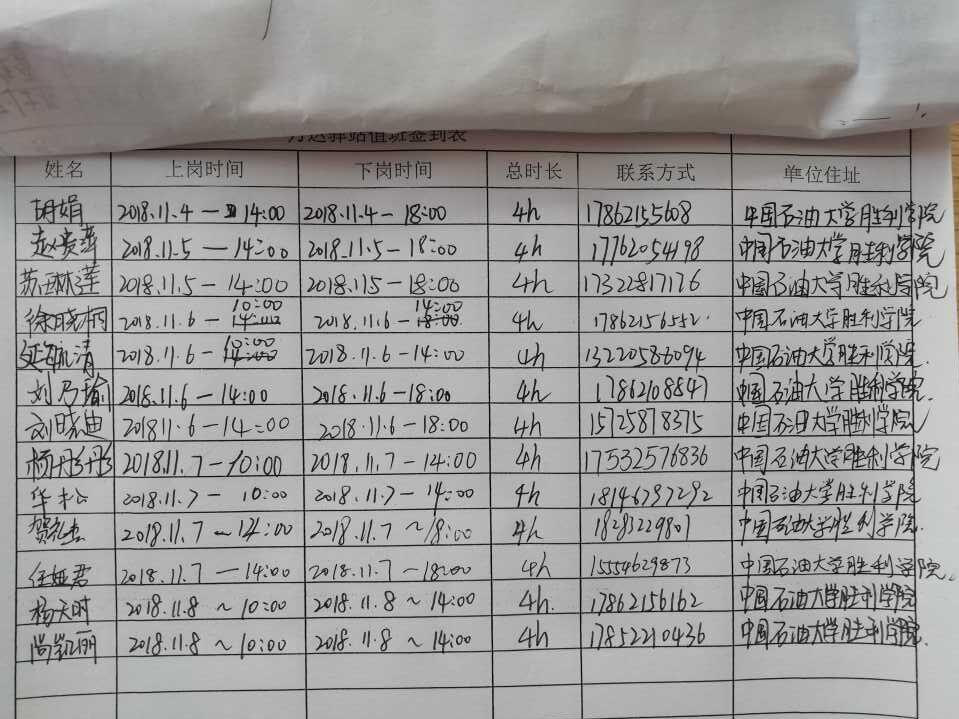 万达驿站值班签到表
姓名 上岗时间 下岗时间 总时长 联系方式 单位住址
胡娟 2018.11.4—14:00 2018.11.4—18:00 4h 17862155608 中国石油大学胜利学院
2018.11.5—14:00 2018.11.5—18:00 4h 17762054198 中国石油大学胜利学院
苏琳莲 2018.11.5-14:00 2018.11.5-18:00 4h 17322817176 中国石油大学胜利学院
徐晓桐 2018.11.6-10:00 2018.11.6-14:00 4h 17862156552. 中国石油大学胜利学院
2018.11.6-10:00 2018.11.6-14:00 4h 13220586094 中国石油大学胜利学院.
刘乃瑜 2018.11.6-14:00 2018.11.6-18:00 4h 17862108847 中国石油大学胜利学院.
刘晓迪 201811.6-14:00 2018.11.6-18:00 4h 15725878375 中国石油大学胜利学院
杨丹丹 2018.11.7-10:00 2018.11.7-14:00 4h 17532576836 中国石油大学胜利学院
华松 2018.11.7- 10:00 2018.11.7-14:00 4h 18146797292 中国石油大学胜利学院
2018.11.7-14:00 2018.11.7~18:00 4h 18283229807 中国石油大学胜利学院.
任娅君 2018.11.7—14:00 2018.11.7-18:00 4h 15554629873 中国石油大学胜利学院.
杨天时 2018.11.8~10:00 2018.11.8~14:00 4h. 17862156162 中国石油大学胜利学院
尚凯丽 2018.11.8~10:00 2018.11.8~14:00 4h 17852210436 中国石油大学胜利学院.